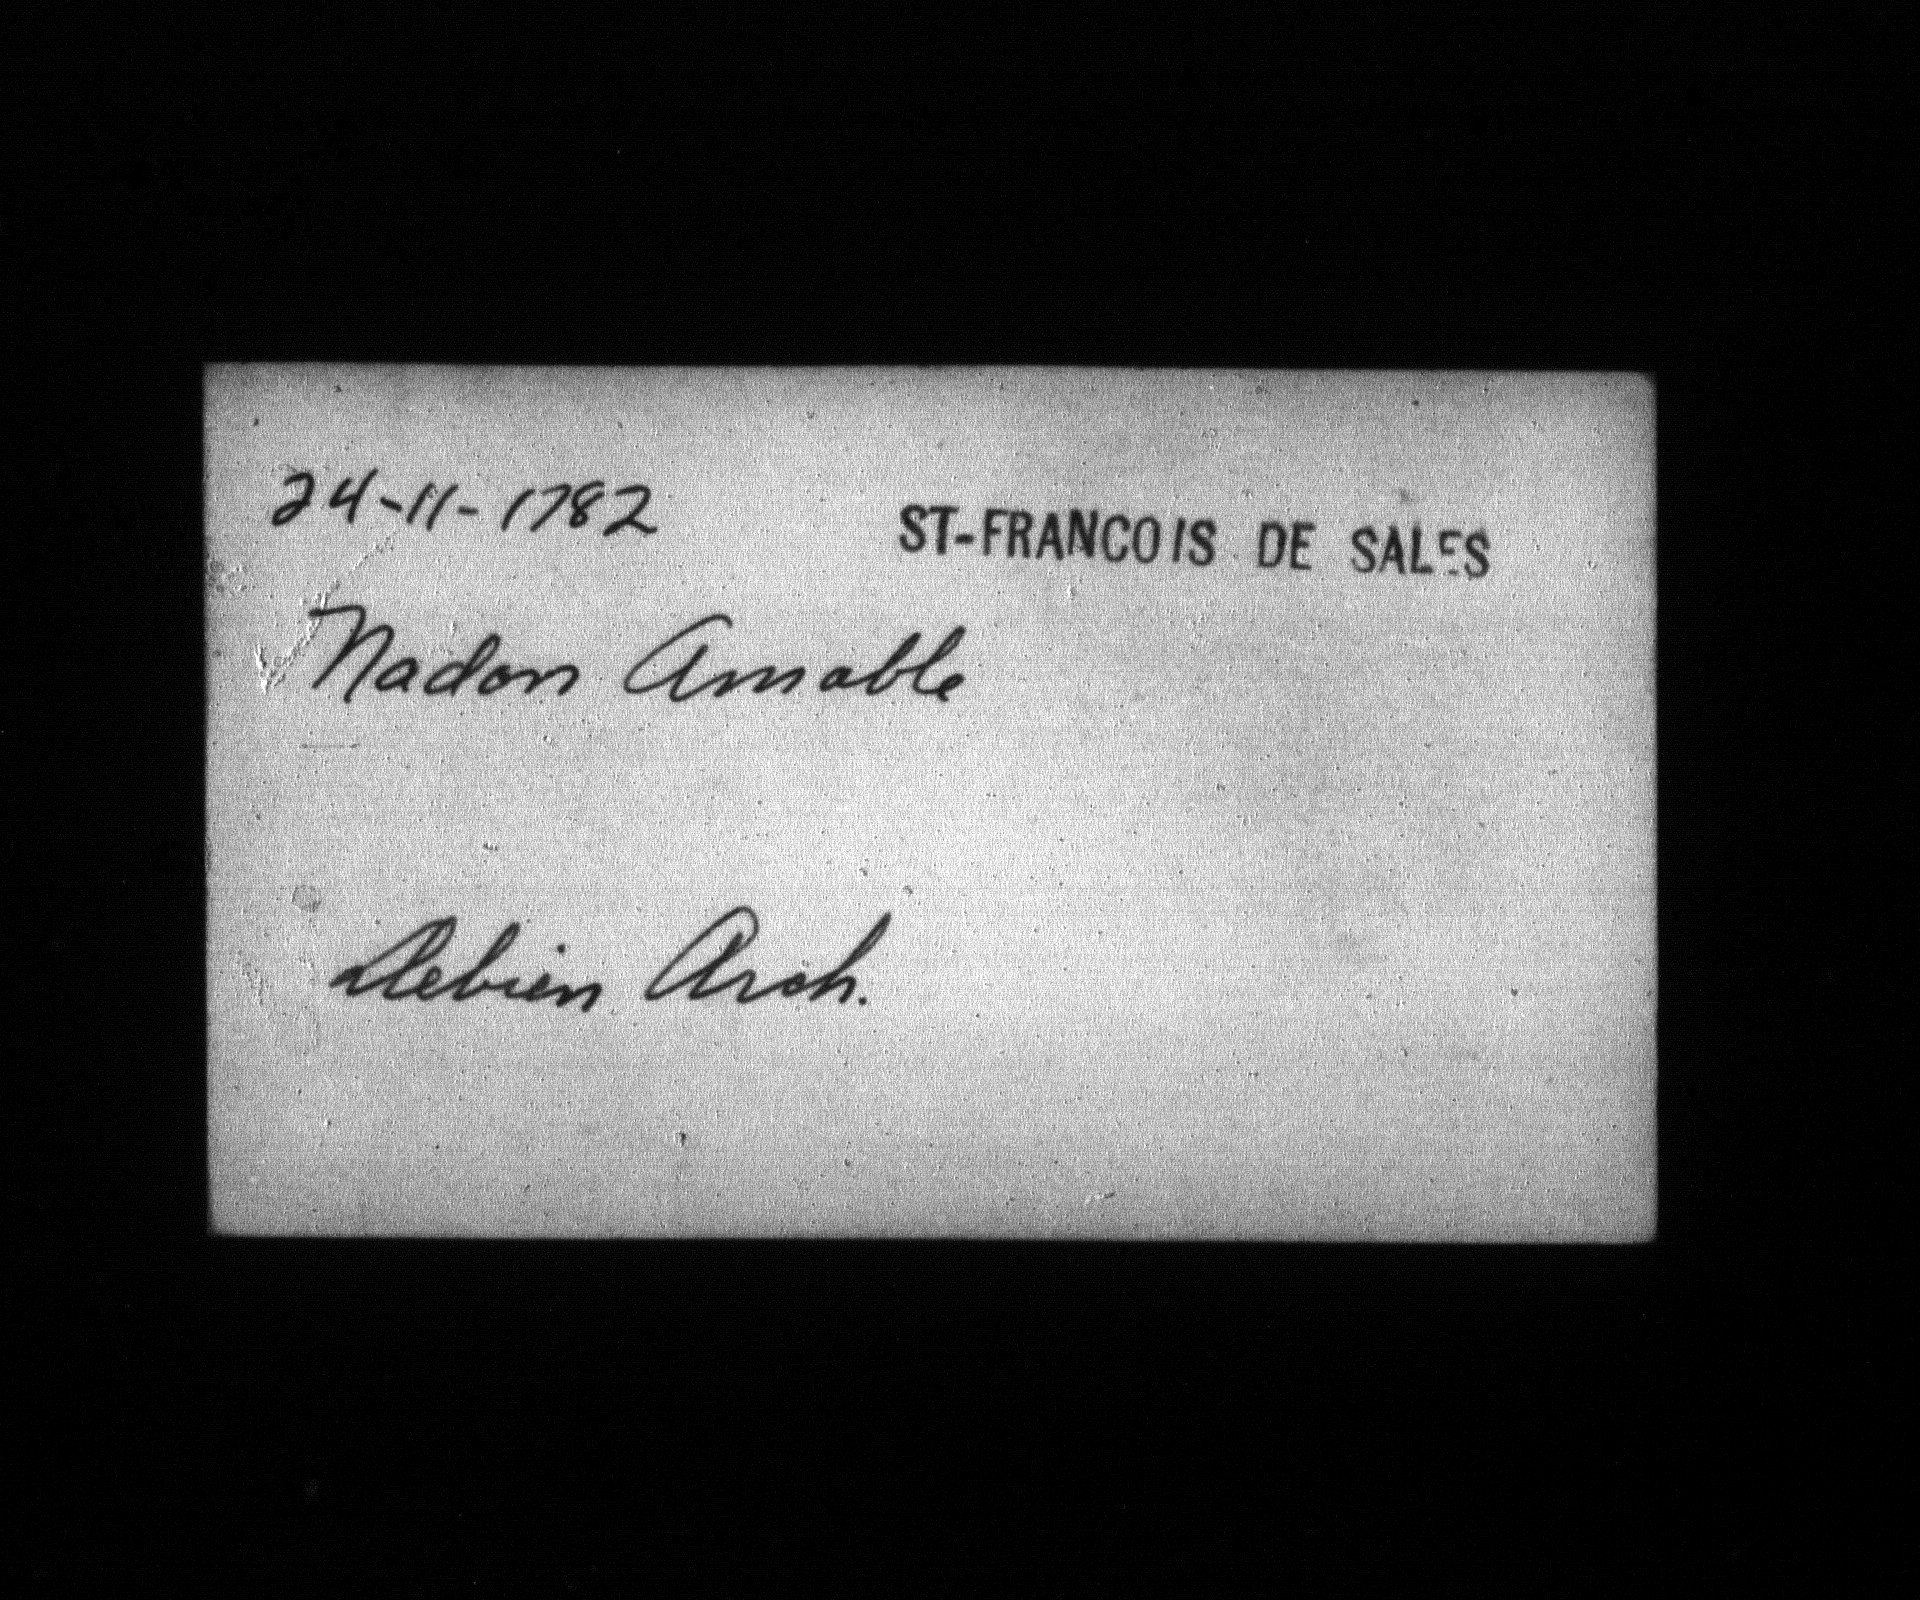 24-11-1782
ST-FRANCOIS DE SALES
Nadon Amable
Debien Arch.